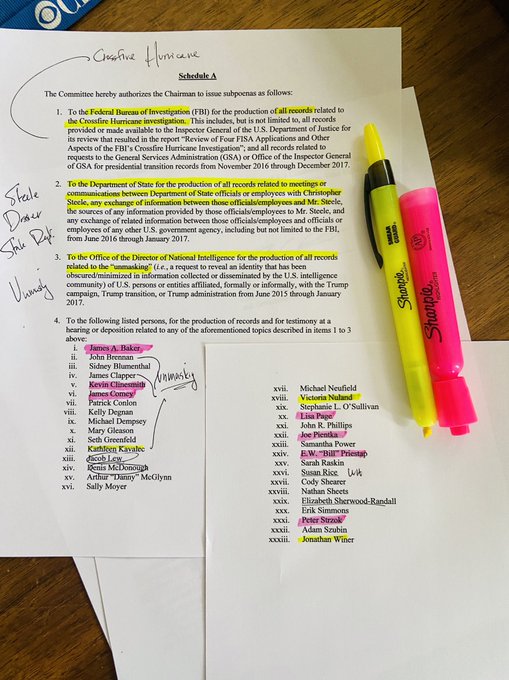 Crossfire Hurricane
Schedule A
The Committee hereby authorizes the Chairman to issue subpoenas as follows:
1. To the Federal Bureau of Investigation (FBI) for the production of all records related to
the Crossfire Hurricane investigation. This includes, but is not limited to, all records
provided or made available to the Inspector General of the U.S. Department of Justice for
its review that resulted in the report “Review of Four FISA Applications and Other
Aspects of the FBI’s Crossfire Hurricane Investigation”; and all records related to
requests to the General Services Administration (GSA) or Office of the Inspector General
of GSA for presidential transition records from November 2016 through December 2017.
2. To the Department of State for the production of all records related to meetings or
communications between Department of State officials or employees with Christopher
Steele, any exchange of information between those officials/employees and Mr. Steele,
the sources of any information provided by those officials/employees to Mr. Steele, and
any exchange of related information between those officials/employees and officials or
employees of any other U.S. government agency, including but not limited to the FBI,
from June 2016 through January 2017.
Steele
State
3. To the Office of the Director of National Intelligence for the production of all records
related to the “unmasking” (i.e., a request to reveal an identity that has been
obscured/minimized in information collected or disseminated by the U.S. intelligence
community) of U.S. persons or entities affiliated, formally or informally, with the Trump
campaign, Trump transition, or Trump administration from June 2015 through January
2017.
4. To the following listed persons, for the production of records and for testimony at a
hearing or deposition related to any of the aforementioned topics described in items 1 to 3
above:
i. James A. Baker
ii. John Brennan
iii. Sidney Blumenthal
iv. James Clapper
v. Kevin Clinesmith
vi. James Comey
vii. Patrick Conlon
viii. Kelly Degnan
ix. Michael Dempsey
x. Mary Gleason
xi. Seth Greenfeld
xii. Kathleen Kavalec
xiii. Jacob Lew
xiv. Denis McDonough
xv. Arthur “Danny” McGlynn
xvi. Sally Moyer
unmasking
xvii. Michael Neufield
xviii. Victoria Nuland
xix. Stephanie L. O’Sullivan
xx. Lisa Page
xxi. John R. Phillips
xxii. Joe Pientka
xxiii. Samantha Power
xxiv. E.W. “Bill” Priestap
xxv. Sarah Raskin
xxvi. Susan Rice WH
xxvii. Cody Shearer
xxviii. Nathan Sheets
xxix. Elizabeth Sherwood-Randall
xxx. Erik Simmons
xxxi. Peter Strzok
xxxii. Adam Szubin
xxxiii. Jonathan Winer
SMEAR GUARD
Sharpie
Sharpie